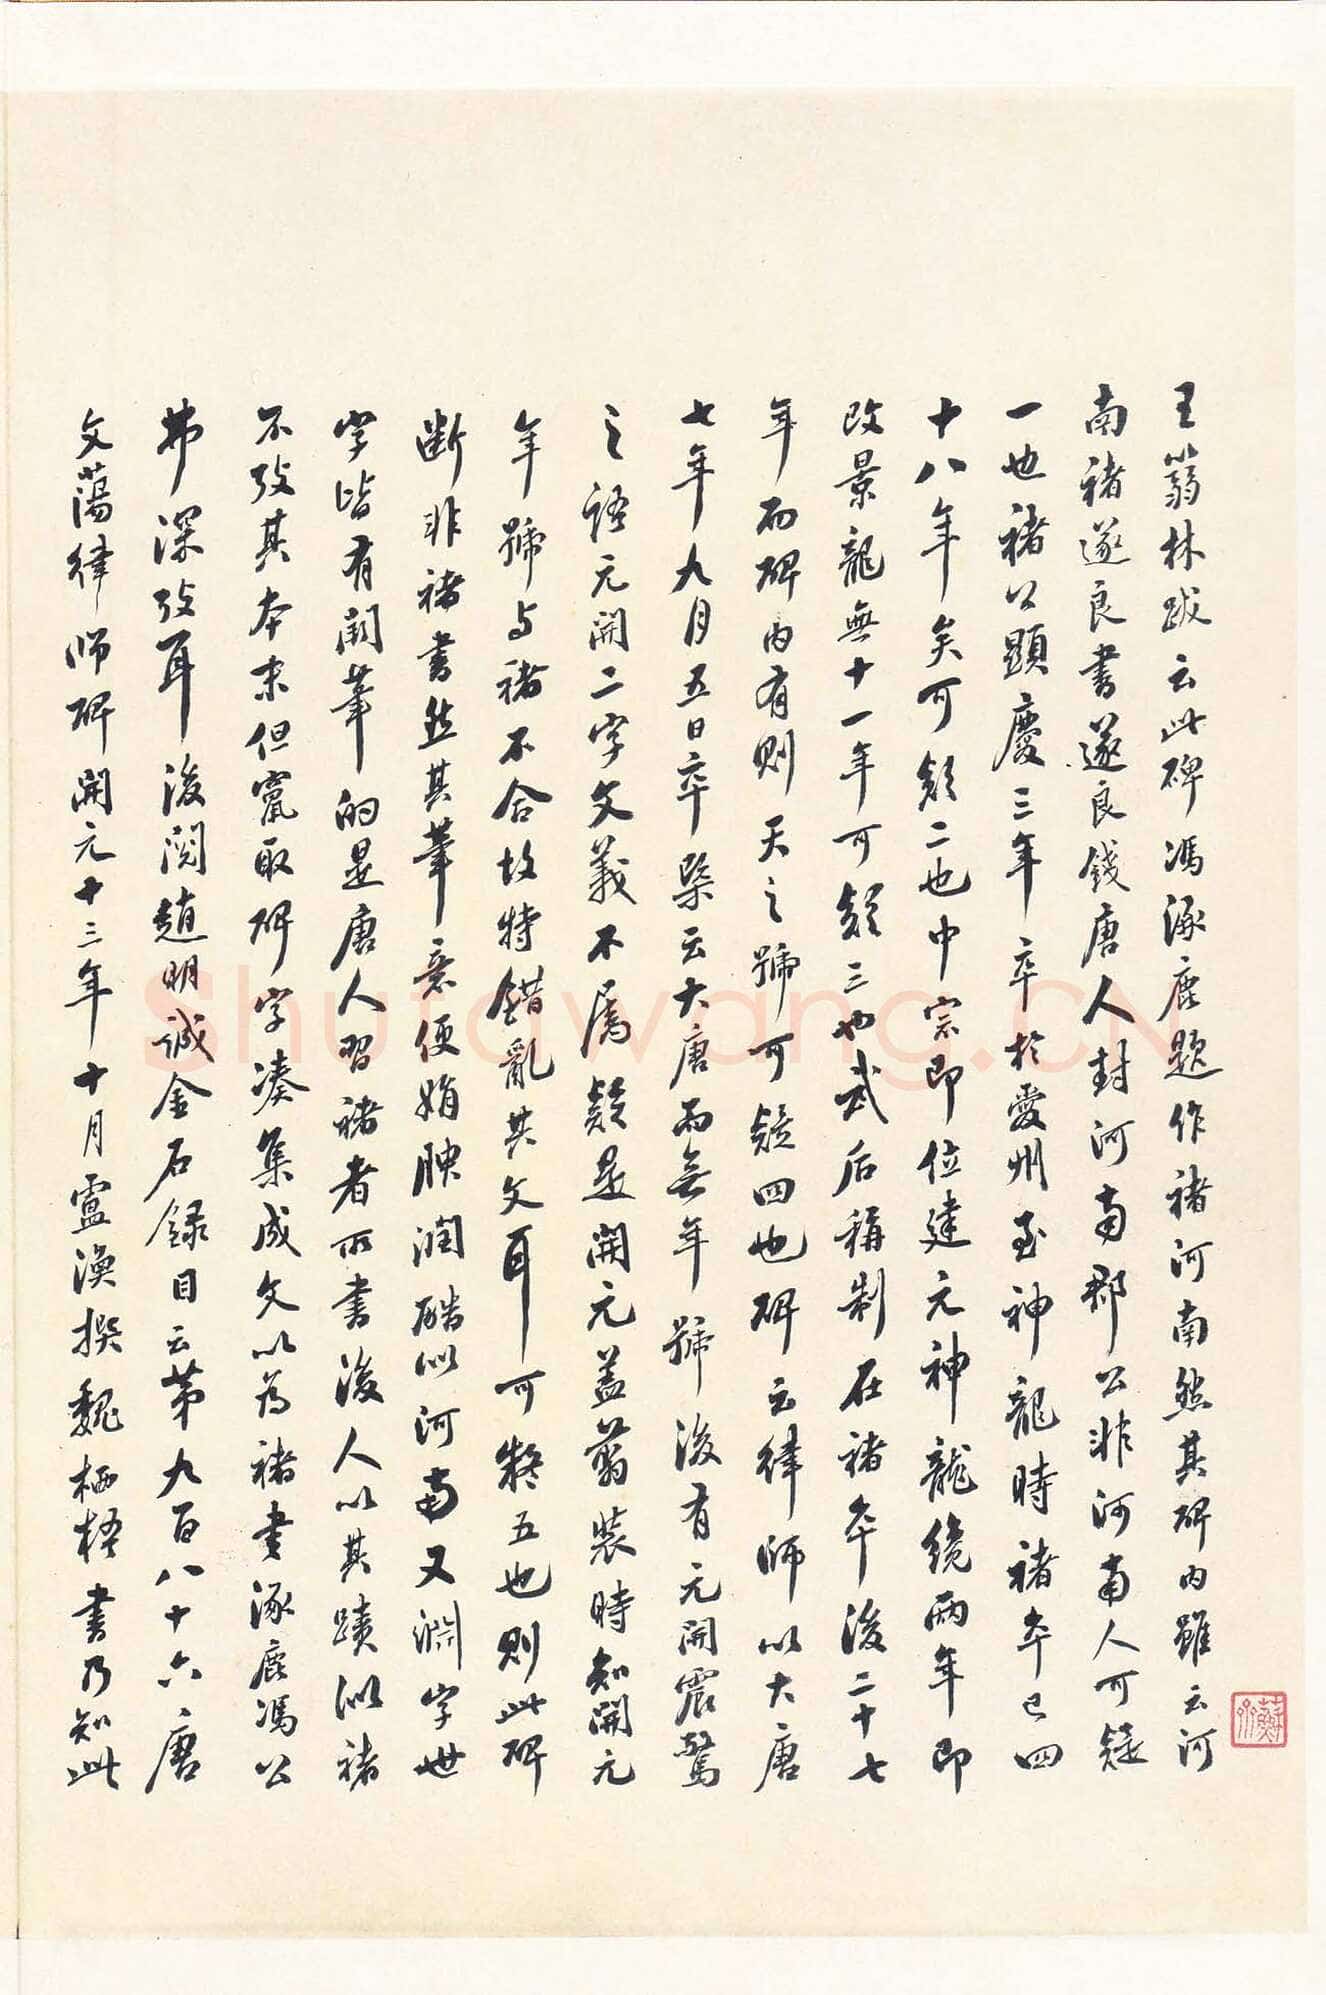 王蒻林跋云此碑馮涿鹿題作褚河南然其碑内雖云河
南褚遂良書遂良錢唐人封河南郡公非河南人可疑
一也褚公顯慶三年卒於愛州至神龍時褚卒已四
十八年矣可疑二也中宗即位建元神龍纔兩年即
改景龍無十一年可疑三也武后稱制在褚卒後二十七
年而碑内有則天之號可疑四也碑云律師以大唐
七年九月五日卒槩云大唐而無年號後有元開震驚
之語元開二字文義不属疑是開元盖蒻裝時知開元
年號与褚不合故特錯亂其文耳可疑五也則此碑
斷非褚書然其筆意便娟腴潤酷似河南又淵字世
字皆有闕筆的是唐人習褚者所書後人以其蹟似褚
不攷其本末但竄取碑字湊集成文以為褚書涿鹿馮公
弗深攷耳後閲趙明誠金石録目云苐九百八十六唐
文蕩律師碑開元十三年十月盧渙撰魏栖梧書乃知此
蘇
Shutawang.CN